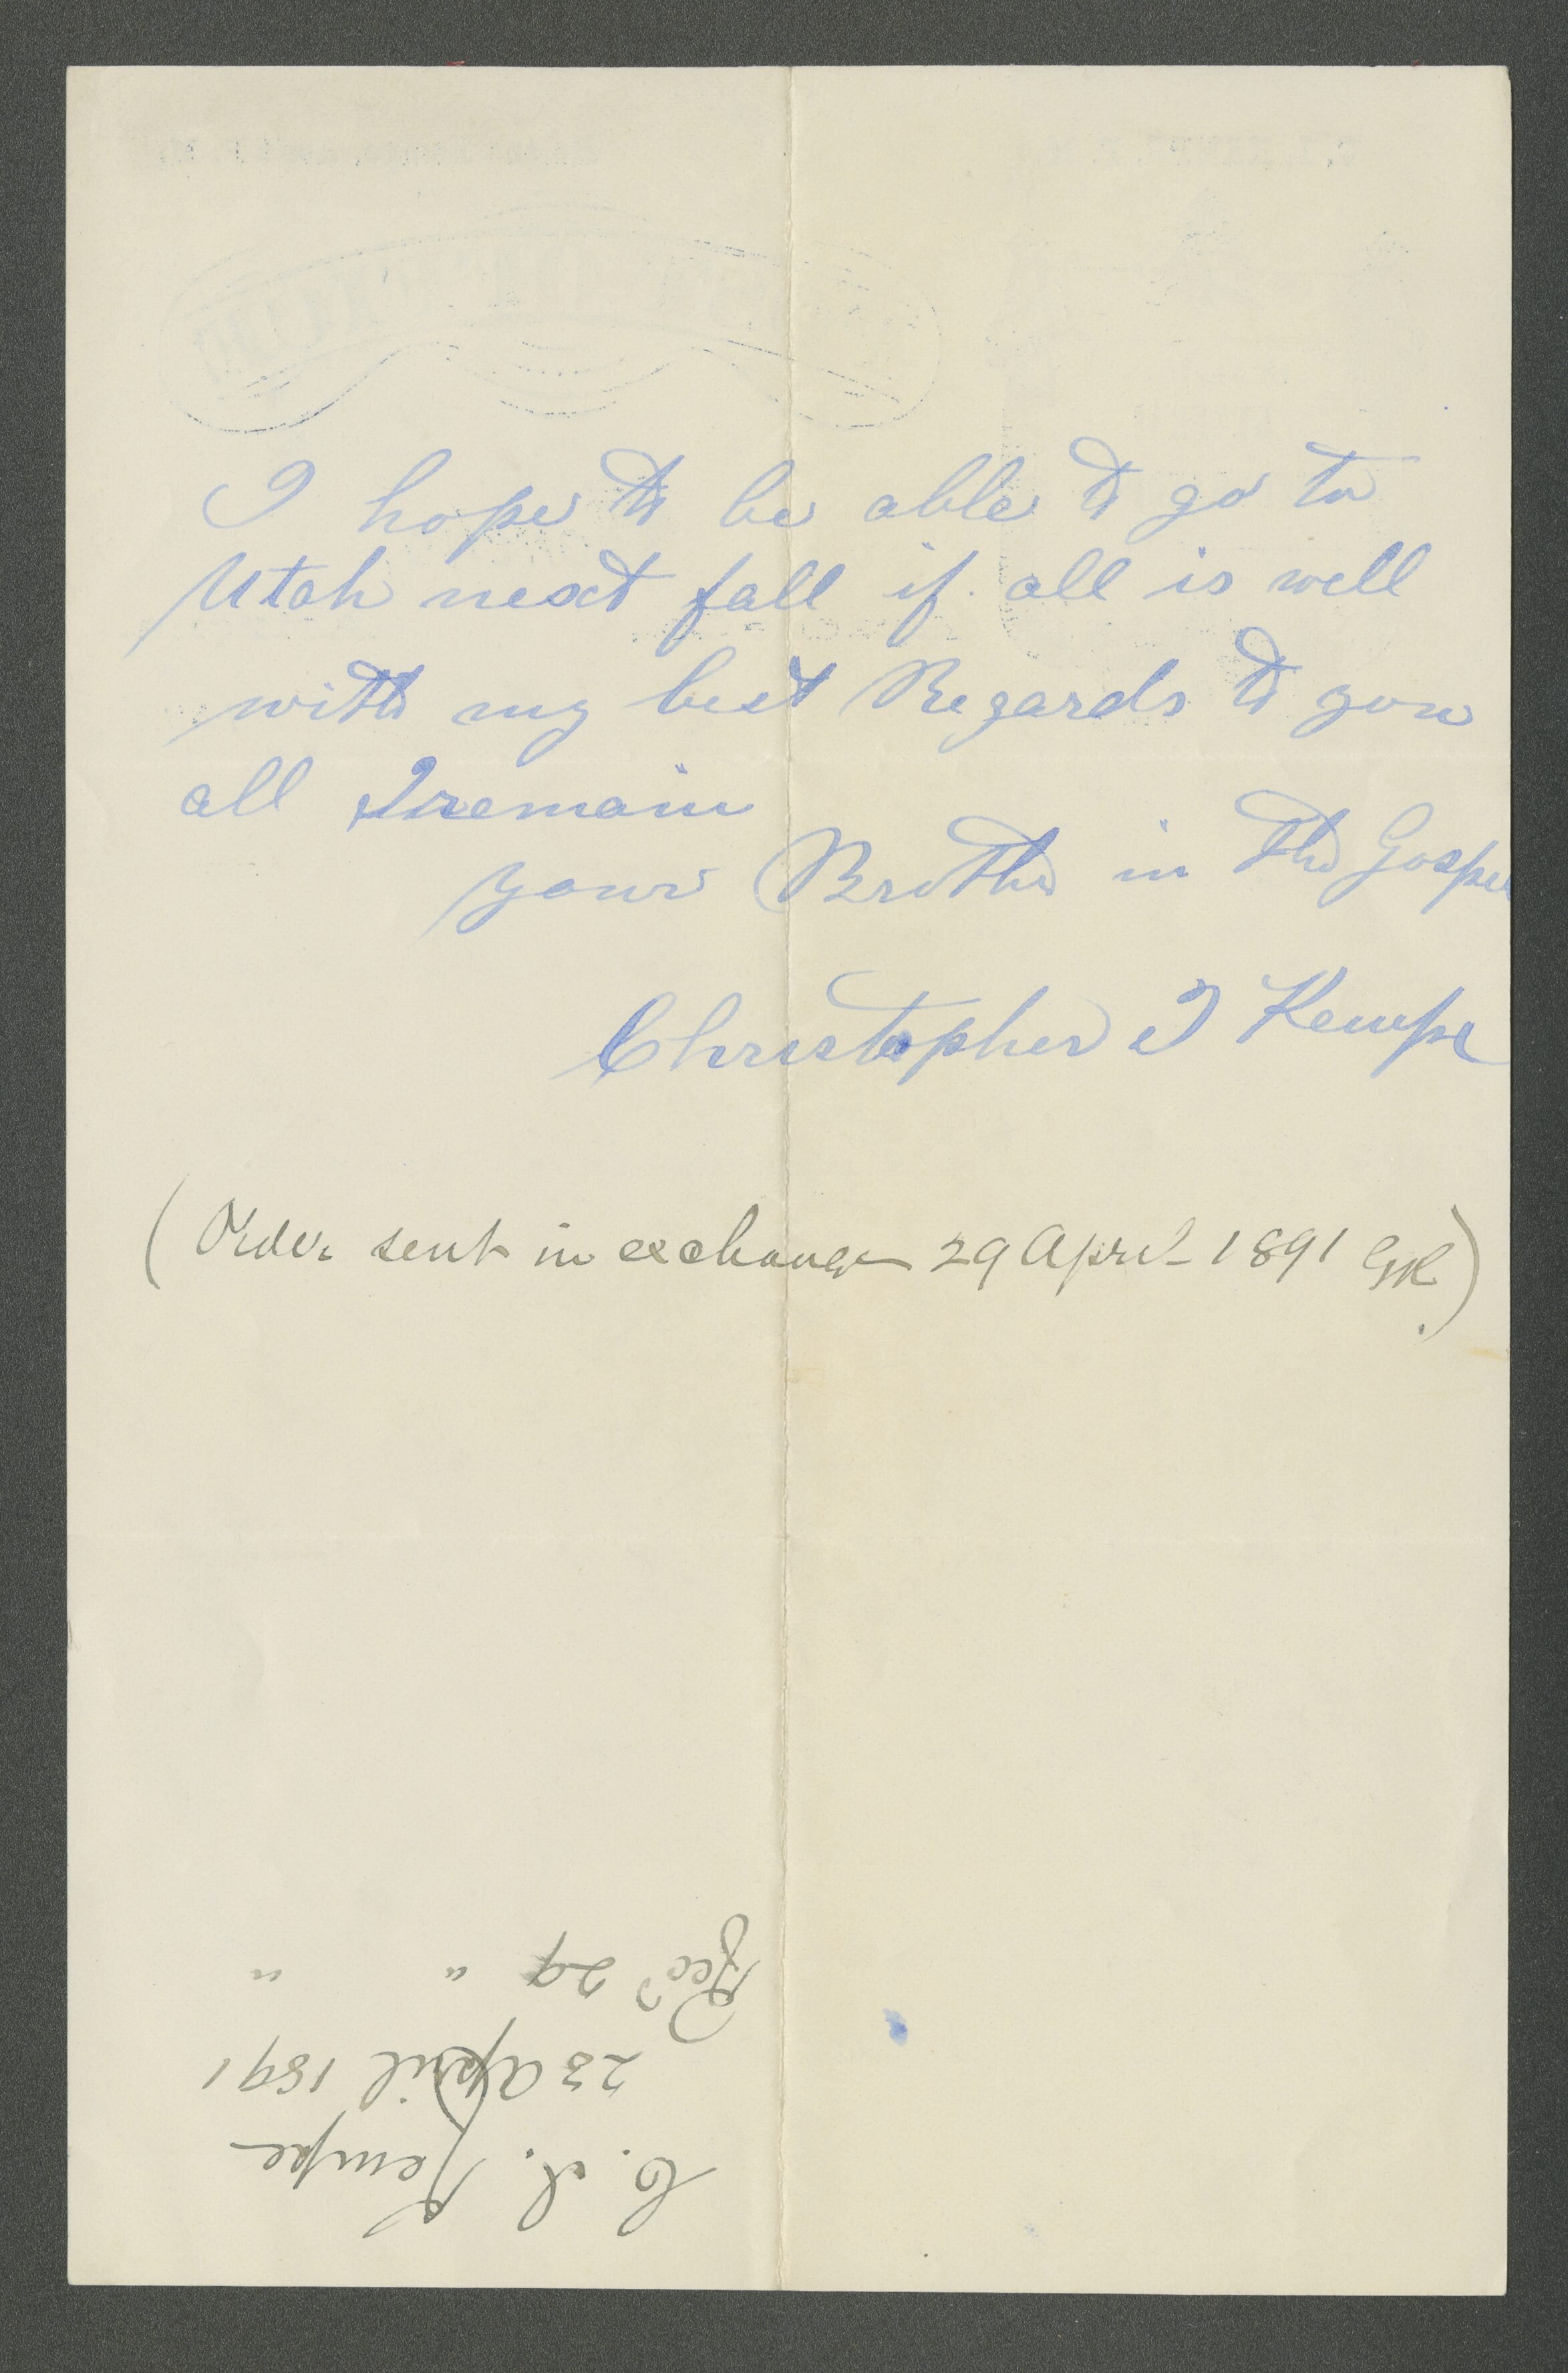 I hope to be able to go to
Utah next fall if all is well
with my best Regards to you
all I remain
your Brother in the Gospel
Christopher J Kempe
(Order sent in exchange 29 April 1891 GR.)
C. J. Kempe
23 April 1891
Recd 29 " "